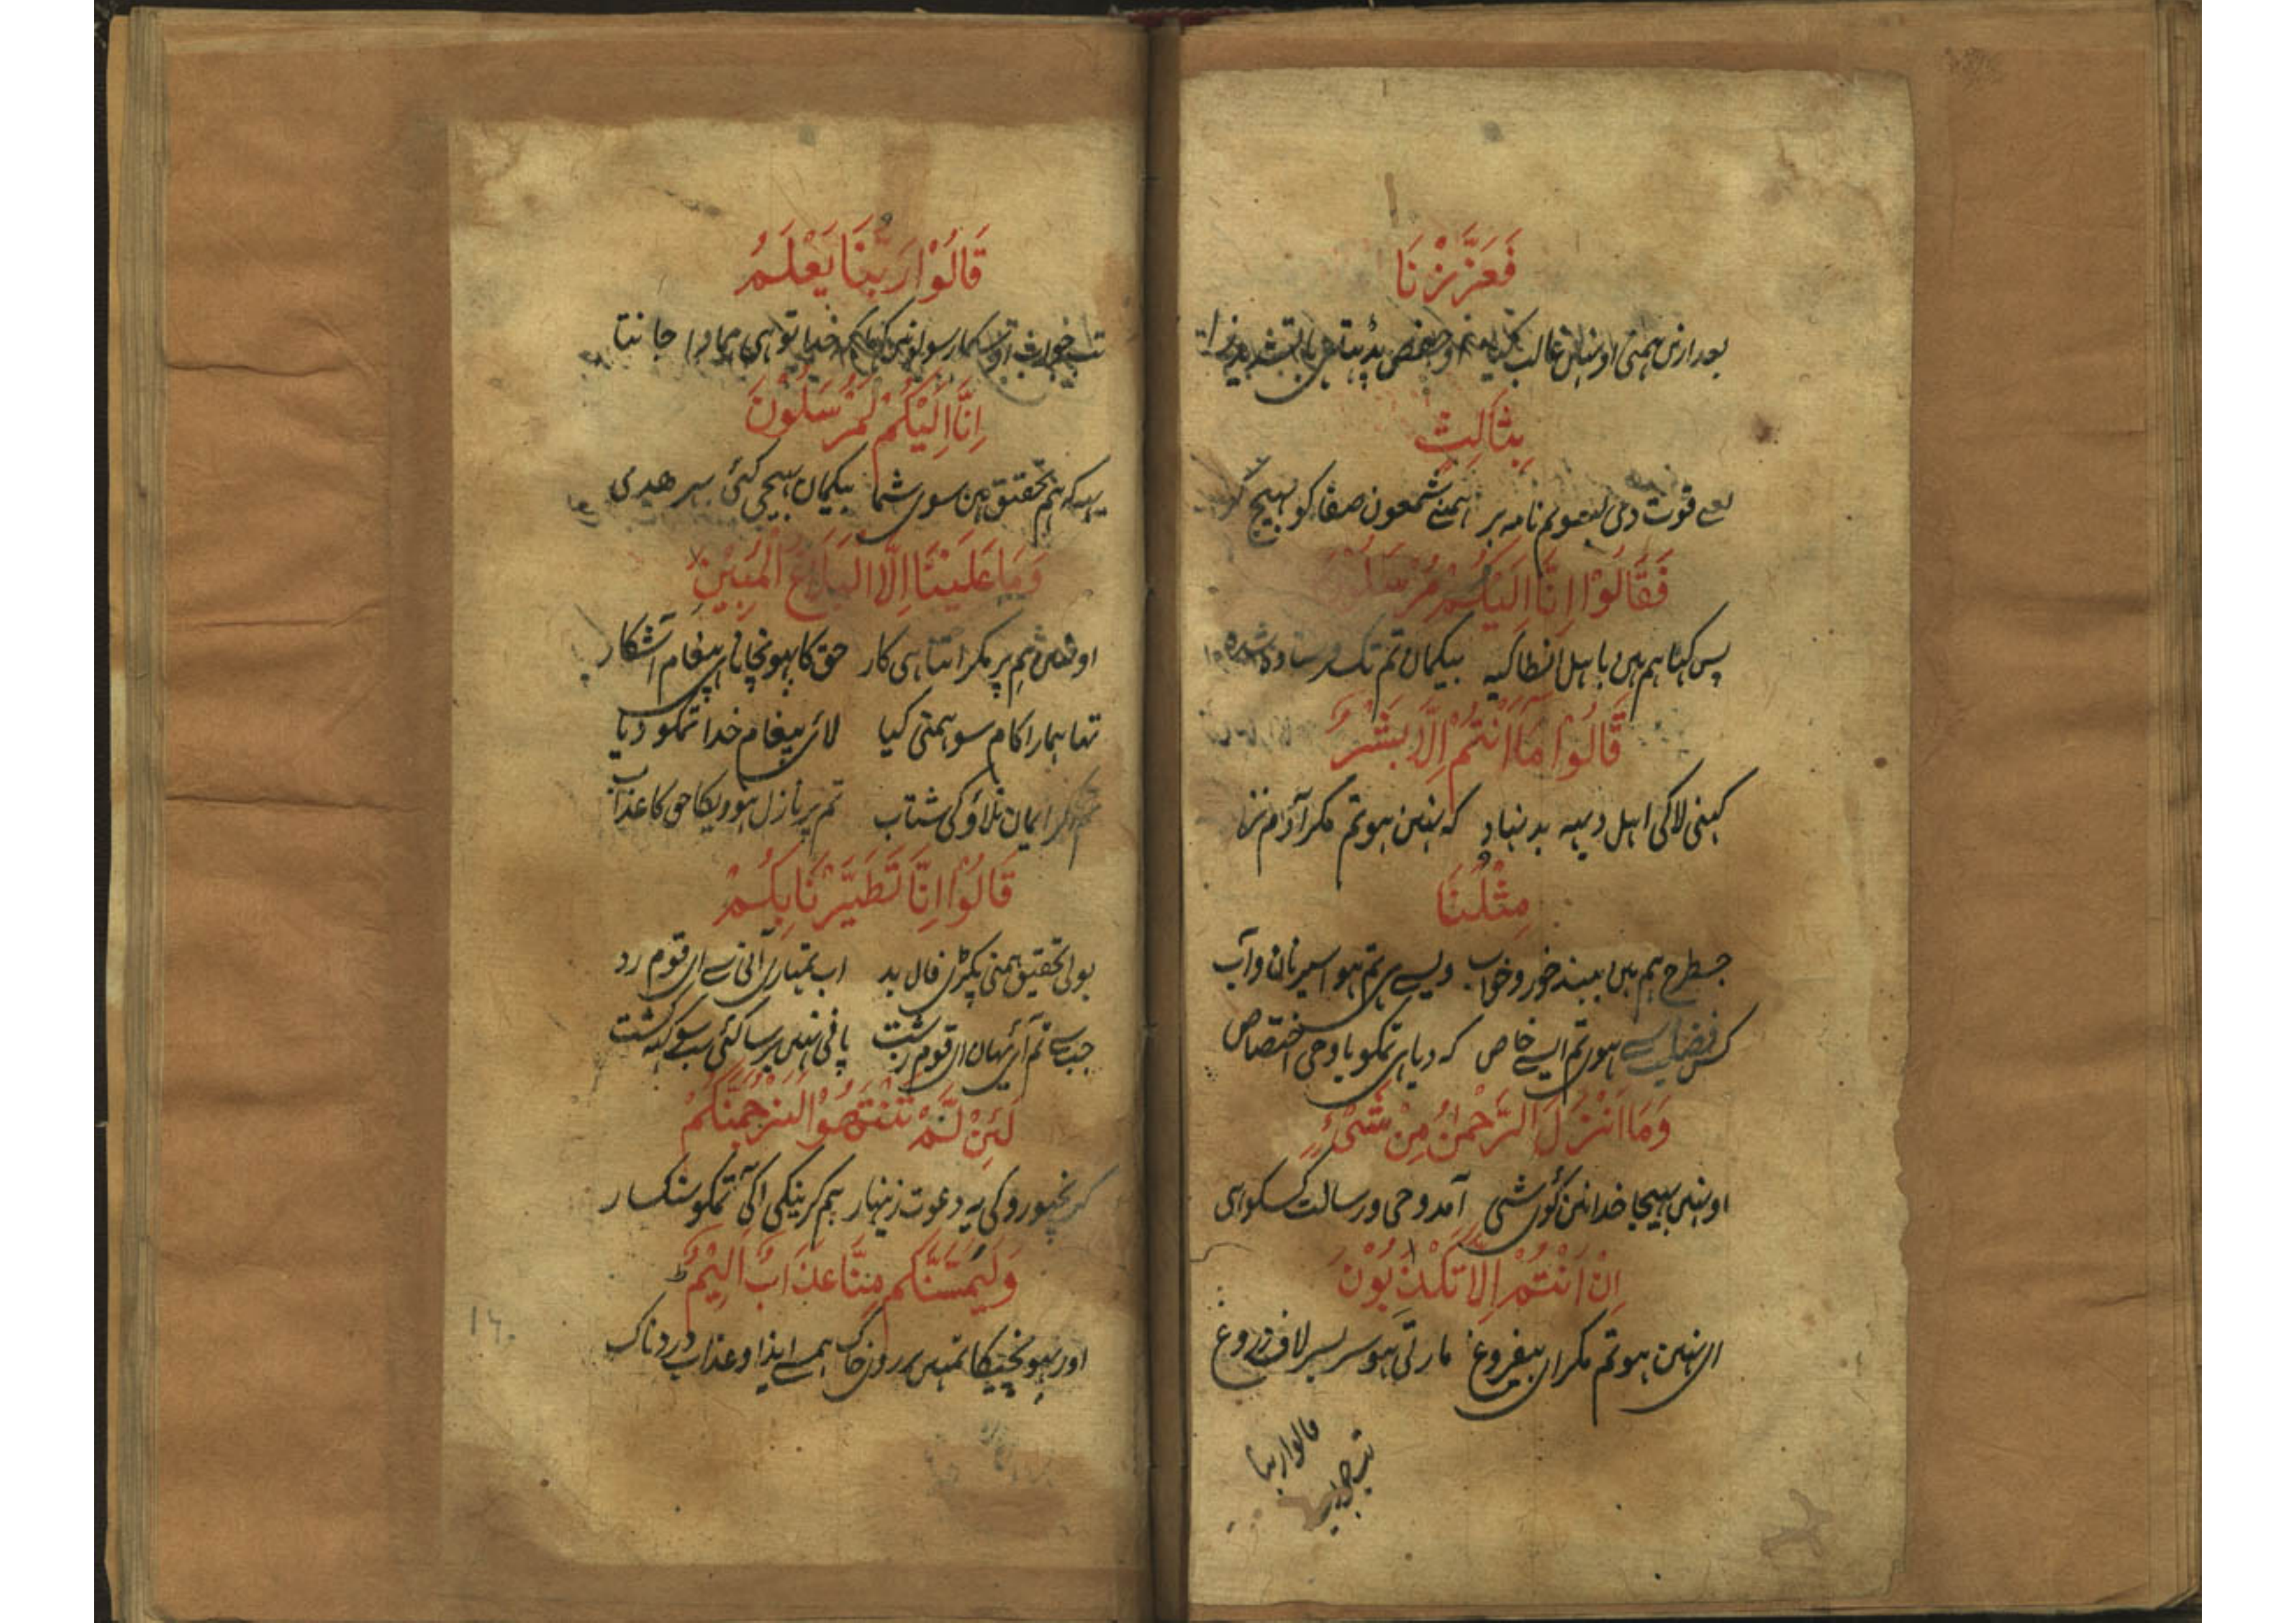 فَعَزَّزْنَا
بعد ازین ہمنی اونہین غالب کیا
بِثَالِثٍ
یعنے قوت دی بسوم نامہ بر ہمنے شمعون صفا کو بہیج کر
فَقَالُوْا اِنَّا اِلَیْكُمْ مُرْسَلُوْنَ
پس کہا ہم ہین باہل انطاکیہ بیکمان تم تک فرستادہ شدہ
قَالُوْا مَا اَنْتُمْ اِلَّا بَشَرٌ
کہنی لاکی اہل دیہہ بد نہاد کہ نہین ہو تم مکر آدم نژاد
مِثْلُنَا
جسطرح ہم ہین ببند خور و خواب ویسے ہی تم ہو اسیر نان و آب
کس فضیلت سے ہوی تم ایسے خاص کہ دیا ہی تمکو با وحی اختصاص
وَمَا اَنْزَلَ الرَّحْمٰنُ مِنْ شَیْءٍ
اور نہین بہیجا خدا نین کوئی شی آمد وحی و رسالت کسکو ہی
اِنْ اَنْتُمْ اِلَّا تَكْذِبُوْنَ
ای نہین ہو تم مکر ای بیفروغ مارتی ہو سربسر لاف دروغ
قالوا ربنا
تب جواب
قَالُوْا رَبُّنَا یَعْلَمُ
تب جواب اونکا رسولونین کہا کہ خدا تو ہی ہمارا جانتا
اِنَّا اِلَیْكُمْ لَمُرْسَلُوْنَ
یہہ کہ ہم تحقیق ہین سوی شما بیکمان بہیجی کئی بہر ھدی
وَمَا عَلَیْنَا اِلَّا الْبَلَاغُ الْمُبِیْنُ
اور نہین ہم پر مکر اتنا ہی کار حق کا پہونچانا ہی پیغام آشکار
تہا ہمارا کام سو ہمنی کیا لائی پیغام خدا تمکو دیا
تم اکر ایمان نلاؤکی شتاب تم پر نازل ہوویکا حق کا عذاب
قَالُوْا اِنَّا تَطَیَّرْنَا بِكُمْ
بولی تحقیق ہمنی پکڑی فال بد اب تمہاری آنی سے ای قوم رد
جب سے تم آئی یہان ای قوم زشت پانی نہین برسا کئی سب سوکہہ کشت
لَئِنْ لَّمْ تَنْتَهُوْا لَنَرْجُمَنَّكُمْ
کر نچھوروکی یہ دعوت زینہار ہم کرینکی اکی تمکو سنکسار
وَلَیَمَسَّنَّكُمْ مِنَّا عَذَابٌ اَلِیْمٌ
اور پہونچیکا تمہین بر روی خاک ہمسے ایذا و عذاب دردناک